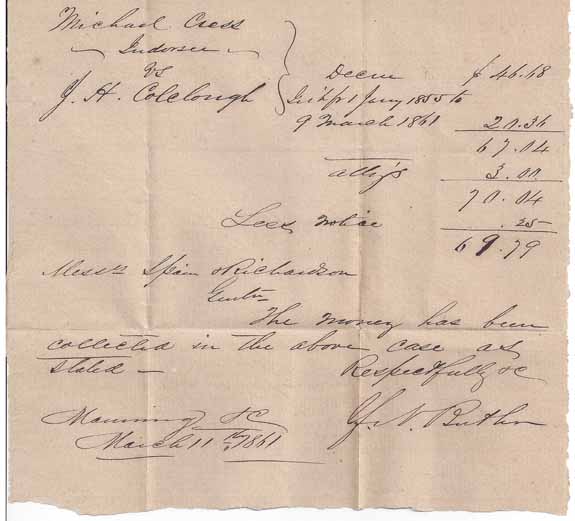 Michael Cress
Indorsee
vs
J. H. Colclough
Decree $ 46.68
Int. fr 1 Jany 1855 to
9 March 1861 20.36
67.04
Atty's 3.00
70.04
Less notice .25
69.79
Messrs Spain & Richardson
Gentn
The money has been
collected in the above case as
stated — Respectfully &c
Manning SC
March 11th 1861